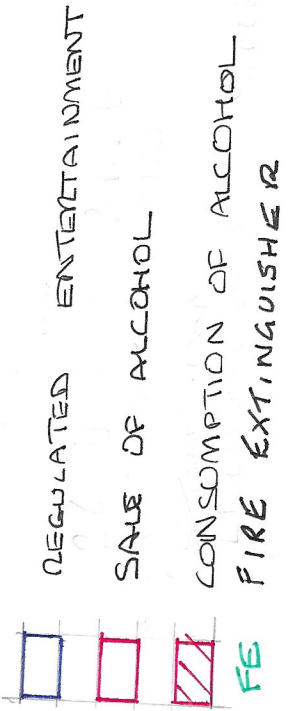 REGULATED ENTERTAINMENT
SALE OF ALCOHOL
CONSUMPTION OF ALCOHOL
FE FIRE EXTINGUISHER